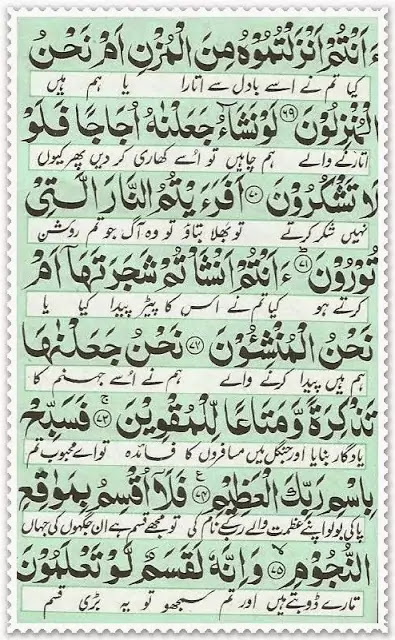 ءَاَنْتُمْ اَنْزَلْتُمُوْهُ مِنَ الْمُزْنِ اَمْ نَحْنُ
کیا تم نے اسے بادل سے اتارا یا ہم ہیں
الْمُنْزِلُوْنَ ۶۹ لَوْ نَشَآءُ جَعَلْنٰهُ اُجَاجًا فَلَوْ
اتارنے والے ہم چاہیں تو اُسے کھاری کر دیں پھر کیوں
لَا تَشْكُرُوْنَ ۷۰ اَفَرَءَيْتُمُ النَّارَ الَّتِيْ
نہیں شکر کرتے تو بھلا بتاؤ تو وہ آگ جو تم روشن
تُوْرُوْنَ ۷۱ ءَاَنْتُمْ اَنْشَاْتُمْ شَجَرَتَهَآ اَمْ
کرتے ہو کیا تم نے اس کا پیڑ پیدا کیا یا
نَحْنُ الْمُنْشِـُٔوْنَ ۷۲ نَحْنُ جَعَلْنٰهَا
ہم ہیں پیدا کرنے والے ہم نے اُسے جہنم کا
تَذْكِرَةً وَّ مَتَاعًا لِّلْمُقْوِيْنَ ۷۳ فَسَبِّحْ
یادگار بنایا اور جنگل میں مسافروں کا فائدہ تو اے محبوب تم
بِاسْمِ رَبِّكَ الْعَظِيْمِ ۷۴ فَلَآ اُقْسِمُ بِمَوٰقِعِ
پاکی بولو اپنے عظمت والے رب کے نام کی تو مجھے قسم ہے ان جگہوں کی جہاں
النُّجُوْمِ ۷۵ وَ اِنَّهٗ لَقَسَمٌ لَّوْ تَعْلَمُوْنَ
تارے ڈوبتے ہیں اور تم سمجھو تو یہ بڑی قسم